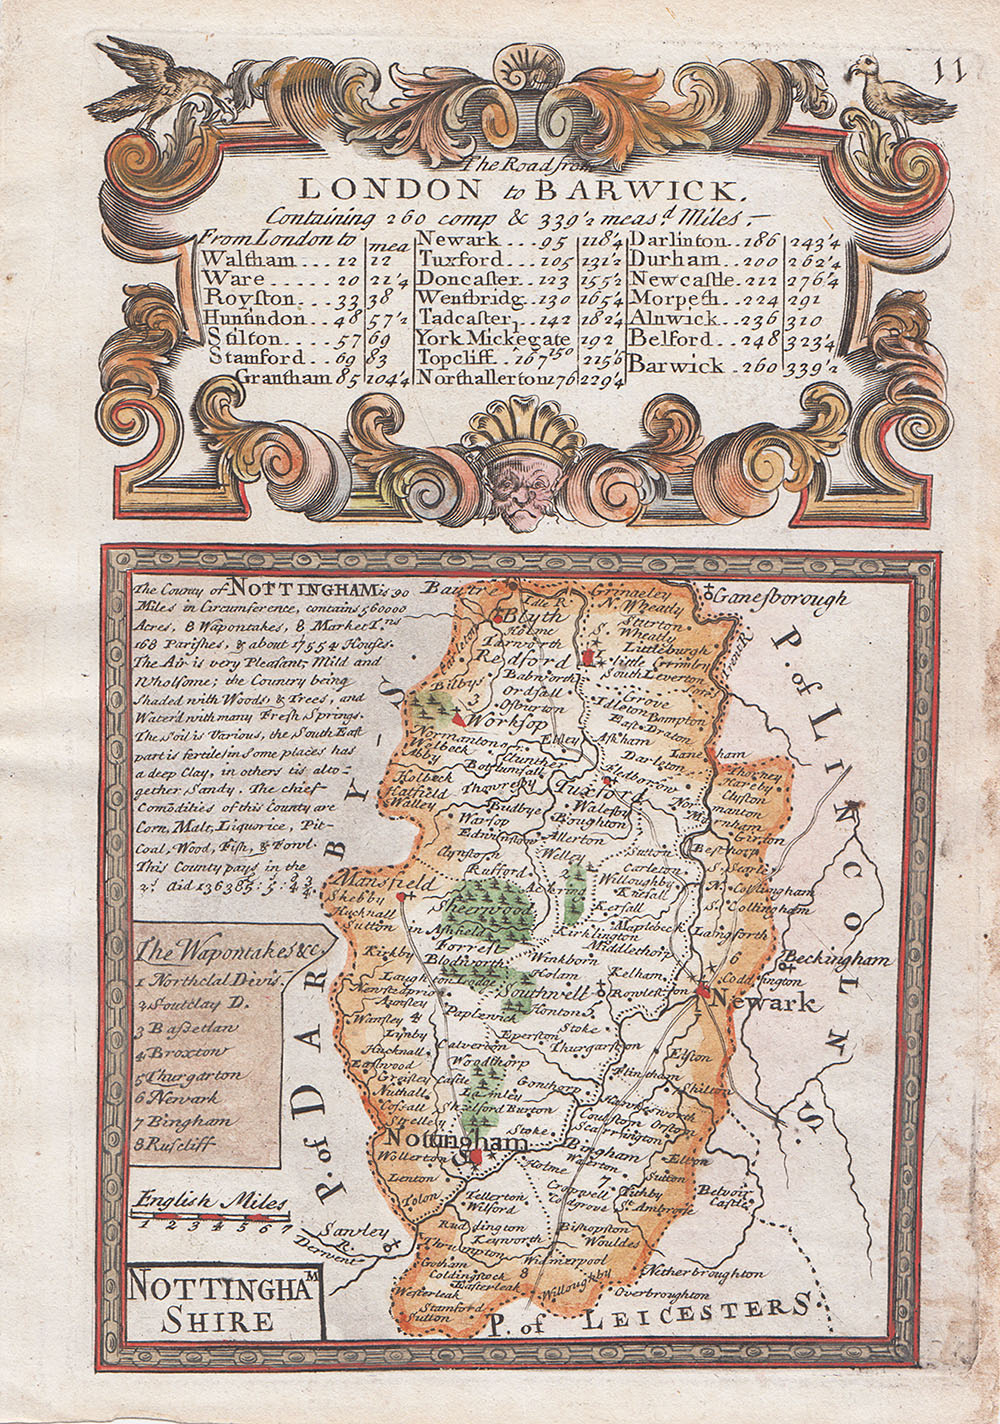 11
The Road from
LONDON to BARWICK.
Containing 260 comp & 339'2 meas.d Miles.
From London to mea
Waltham .... 12 12
Ware ...... 20 21'4
Royston... 33 38
Huntindon.. 48 57'2
Stilton.... 57 69
Stamford.. 69 83
Grantham 85 104'4
Newark ... 95 118'4
Tuxford... 105 131'2
Doncaster.. 123 155'2
Wentbridg.. 130 165'4
Tadcaster.. 142 182'4
York Mickegate 150 192
Topcliff.. 167 215'6
Northallerton 176 229'4
Darlinton.. 186 243'4
Durham.. 200 262'4
Newcastle.. 212 276'4
Morpeth.. 224 291
Alnwick.. 236 310
Belford.. 248 323'4
Barwick . 260 339'2
The County of NOTTINGHAM is 90
Miles in Circumference, contains 560000
Acres, 8 Wapontakes, 8 Market T.ns
168 Parishes, & about 17554 Houses.
The Air is very Pleasant, Mild and
Wholsome; the Country being
shaded with Woods & Trees, and
Water'd with many Fresh Springs.
The Soil is Various, the South East
part is fertile; in some places has
a deep Clay, in others tis alto-
gether Sandy. The chief
Comodities of this County are
Corn, Malt, Liquorice, Pit-
Coal, Wood, Fish, & Fowl.
This County pays in the
2s. Aid 13638£: 5: 4 3/4
The Wapontakes &c.
1 Northclal Divis.
2 Soutclay D.
3 Bassetlaw
4 Broxtow
5 Thurgarton
6 Newark
7 Bingham
8 Ruscliff
English Miles
1 2 3 4 5 6 7
NOTTINGHAM
SHIRE
P. of DARBY-S
P. of LINCOLNS.
P. of LEICESTERS.
Bautre
Idle R.
Grimeley
N. Wheatly
Ganesborough
Blyth
Sturton
S. Wheatly
Holme
Barnworth
Littleburgh
Redford
little Grimley
South Leverton
Trent R
Bilbys
3
Babnworth
Ordsall
Osburton
Grove
Worksop
Idleton
Bampton
East Draton
Normanton
Elksley
Askham
Welbeck
Abby
Clunther
Darleton
Laneham
Bothumsall
Fledborow
Thorney
Holbeck
Hatfield
Thoresby
Tuxford
Hareby
Clyfton
Walley
Budbye
Walesby
Boughton
Normanton
Marnham
Warsop
Girton
Edwinstow
Allerton
Besthorp
Clynstorn
Welley
Sutton
S. Scarle
Rufford
Carleton
N. Collingham
Mansfield
Willoughby
2
Skegby
Ackering
Knesall
Hucknall
Sherwood
Kersall
S. Collingham
Sutton
in Ashfield
Forrest
Maplebeck
Langforth
Kirklington
Middlethorp
Kirkby
Blodworth
Winkborn
6
Beckingham
Laughton
Lodge
Holam
Kelham
Coddington
Newsted prio
Southwell
Rowleston
Newark
Annsley
Wansley
Paplewick
Honton
Stoke
Lynby
Eperston
Hucknall
Calverton
Thurgarton
Elston
Eastwood
Woodthorp
Flintham
Greisley Castle
Gonthorp
Shilton
Nuthall
Lamley
Cossall
Shelford
Burton
Coulston
Orston
Strelley
Scarrington
Nottingham
Stoke
Bingham
Wollerton
Holme
Waterton
Elton
Lenton
7
Sutton
Belvoir
Castle
Tolon
Tellerton
Cropwell
Tithby
Wilford
Coldgrove
St. Ambrose
Sawley
R. Derwent
Ruddington
Bishopston
Keyworth
Wouldes
Thrumpton
Widmerpool
Gotham
Netherbroughton
Coldingstock
8
Westerleak
Easterleak
Willoughby
Overbroughton
Stamford
Sutton